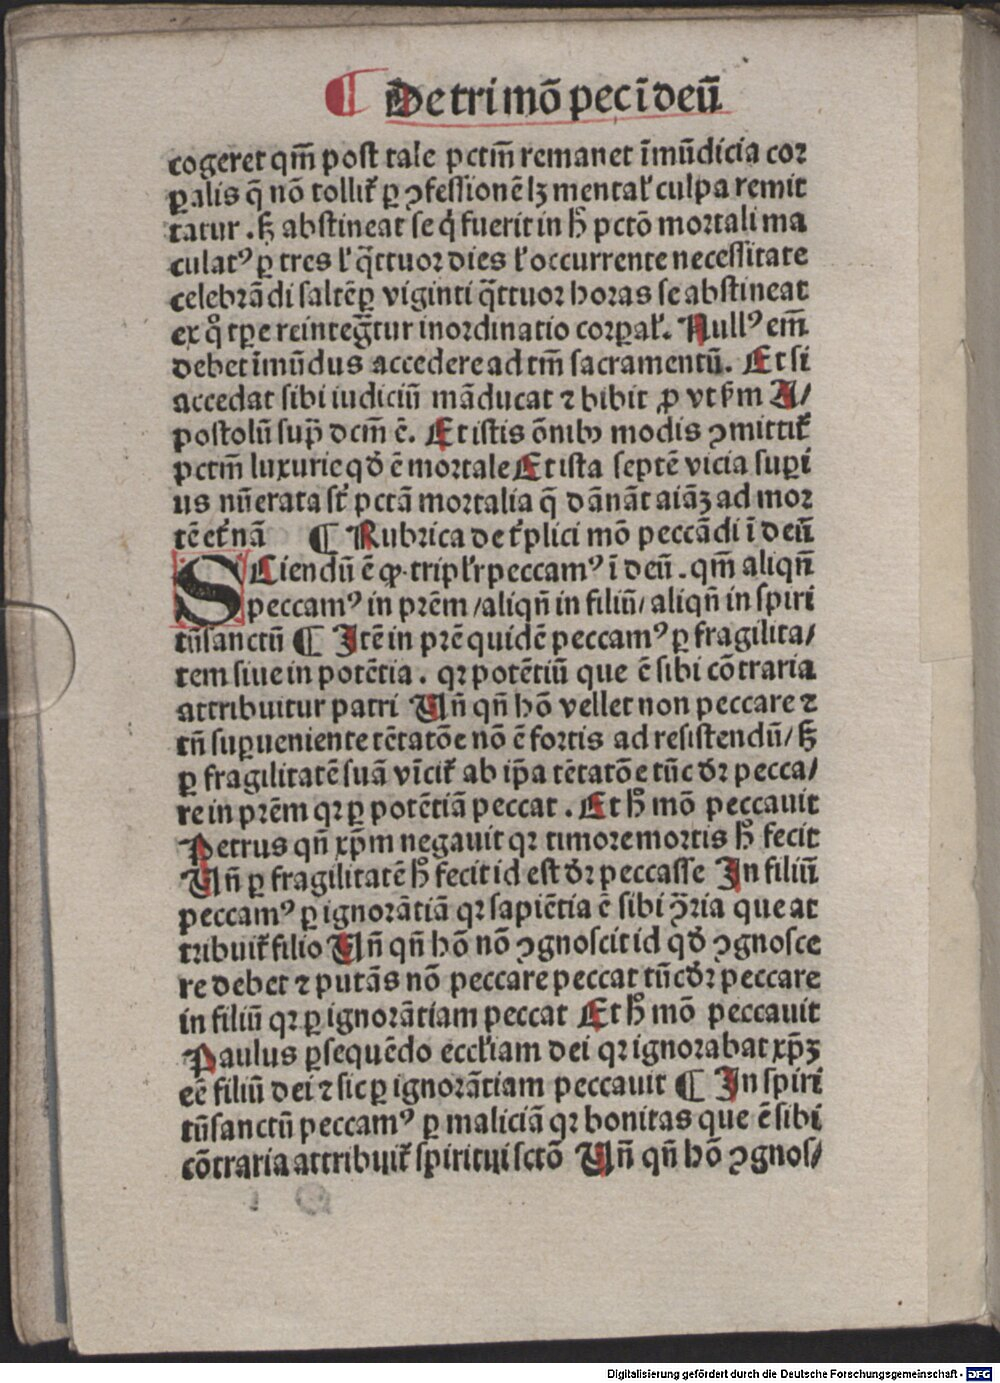 ¶ De tri mō pec ī deū
cogeret qm̄ post tale pctm̄ remanet īmūdicia cor
ꝑalis q̄ nō tollit᷑ ꝑ ꝯfessionē lꝫ mental᷑ culpa remit
tatur . sꝫ abstineat se q̇ fuerit in h̄ pctō mortali ma
culatꝰ ꝑ tres l᷑ q̄ttuor dies l᷑ occurrente necessitate
celebrādi saltē ꝑ viginti q̄ttuor horas se abstineat
ex qͦ tꝑe reintegr̄tur inordinatio corꝑal᷑. Nullꝰ em̄
debet īmūdus accedere ad tm̄ sacramentū. Et si
accedat sibi iudiciū māducat ⁊ bibit ꝓ vt ẜm A/
postolū sup̄ dcm̄ ē. Et istis ōnibꝫ modis ꝯmittit᷑
pctm̄ luxurie qd̄ ē mortale Et ista septē vicia suꝑi
us nūerata st᷑ pctā mortalia q̄ dānāt aīaꝫ ad mor
tē et᷑nā ¶ Rubrica de t᷑plici mō peccādi ī deū
SCiendū ē ꝙ tripl᷑r peccamꝰ ī deū . qm̄ aliqn̄
peccamꝰ in prēm / aliqn̄ in filiū / aliqn̄ in spiri
tūsanctū ¶ Itē in prē quidē peccamꝰ ꝑ fragilita/
tem siue in potētia . qꝛ potētiū que ē sibi cōtraria
attribuitur patri Un̄ qn̄ hō vellet non peccare ⁊
tn̄ suꝑueniente tētatōe nō ē fortis ad resistendū / sꝫ
ꝑ fragilitatē suā vīcit᷑ ab ip̄a tētatōe tūc dr̄ pecca/
re in prēm qꝛ ꝑ potētiā peccat . Et hͦ mō peccauit
Petrus qn̄ xp̄m negauit qꝛ timore mortis hͦ fecit
Un̄ ꝑ fragilitatē hͦ fecit id est dr̄ peccasse In filiū
peccamꝰ ꝑ ignorātiā qꝛ sapiētia ē sibi ꝯ̄ria que at
tribuit᷑ filio Un̄ qn̄ hō nō ꝯgnoscit id qd̄ ꝯgnosce
re debet ⁊ putās nō peccare peccat tūc dr̄ peccare
in filiū qꝛ ꝑ ignorātiam peccat Et hͦ mō peccauit
Paulus ꝑsequēdo eccl᷑iam dei qꝛ ignorabat xp̄ꝫ
eē filiū dei ⁊ sic ꝑ ignorātiam peccauit ¶ In spiri
tūsanctū peccamꝰ ꝑ maliciā qꝛ bonitas que ē sibi
cōtraria attribuit᷑ spiritui sctō Un̄ qn̄ hō ꝯgnos/
Digitalisierung gefördert durch die Deutsche Forschungsgemeinschaft - DFG